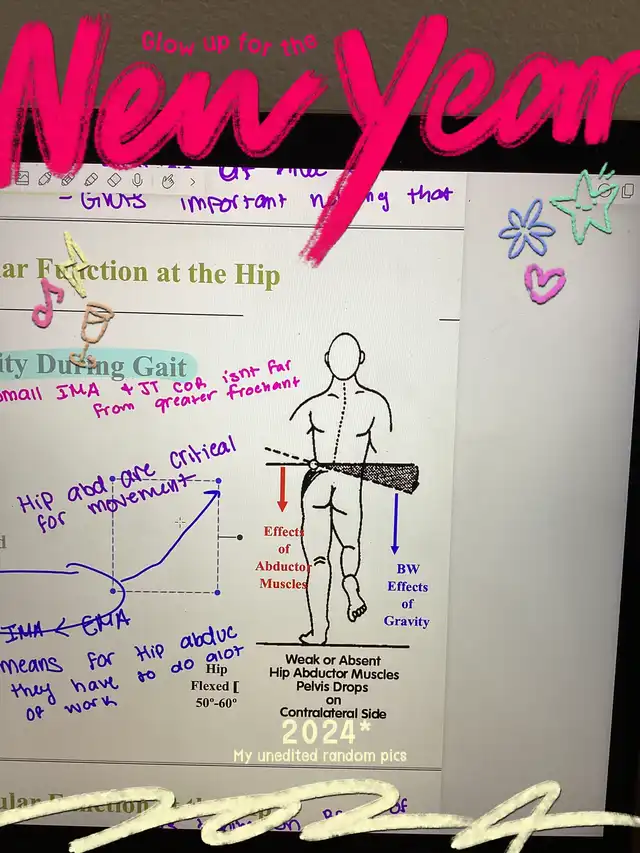 Glow up for the
New Year
- GMUs important
that
Function at the Hip
During Gait
small IMA + JT COR isnt far
from greater trochant
Hip abd. are critical
for movement
Effects
of
Abductor
Muscles
BW
Effects
of
Gravity
IMA < EMA
means for Hip abduc
they have to do alot
of work
Hip
Flexed [
50º-60º
Weak or Absent
Hip Abductor Muscles
Pelvis Drops
on
Contralateral Side
2024*
My unedited random pics
of
2024